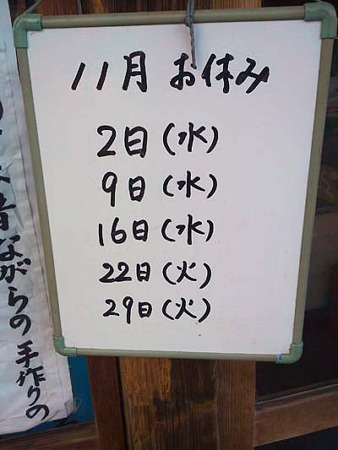 11月 お休み
2日(水)
9日(水)
16日(水)
22日(火)
29日(火)
昔ながらの手作りの